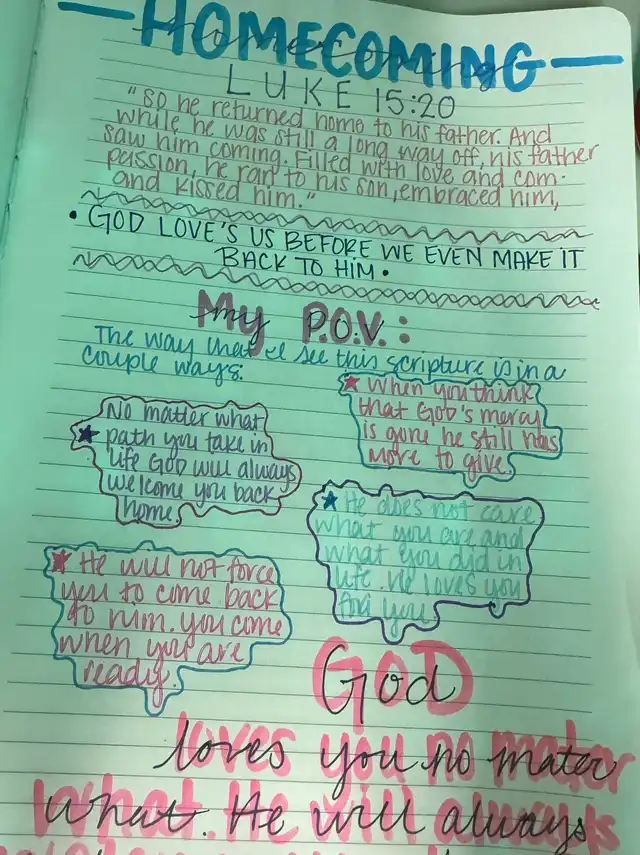 HOMECOMING
LUKE 15:20
"So he returned home to his father. And
while he was still a long way off, his father
saw him coming. Filled with love and com-
passion, he ran to his son, embraced him,
and kissed him."
• GOD LOVE'S US BEFORE WE EVEN MAKE IT
BACK TO HIM •
My P.O.V.:
The way that I see this scripture is in a
couple ways.
★ When you think
that God's mercy
is gone he still has
more to give.
No matter what
★ path you take in
life God will always
welcome you back
home.
★ He does not care
what you are and
what you did in
life. He loves you
for you
★ He will not force
you to come back
to him. you come
when you are
ready.
God
loves you no mater
what. He will always